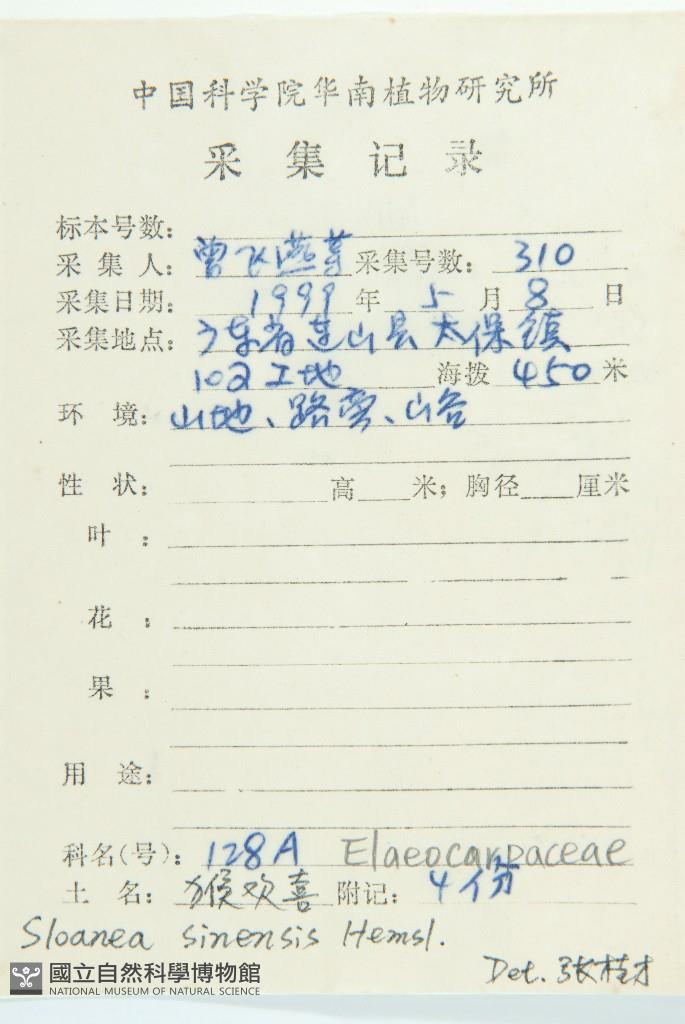 中国科学院华南植物研究所
采集记录
标本号数：
采集人：曾飞燕等 采集号数：310
采集日期：1999年5月8日
采集地点：广东省连山县太保镇
102工地 海拨450米
环境：山地、路旁、山谷
性状： 高 米；胸径 厘米
叶：
花：
果：
用途：
科名(号)：128A Elaeocarpaceae
土名：猴欢喜 附记：4份
Sloanea sinensis Hemsl.
Det. 张桂才
國立自然科學博物館
NATIONAL MUSEUM OF NATURAL SCIENCE